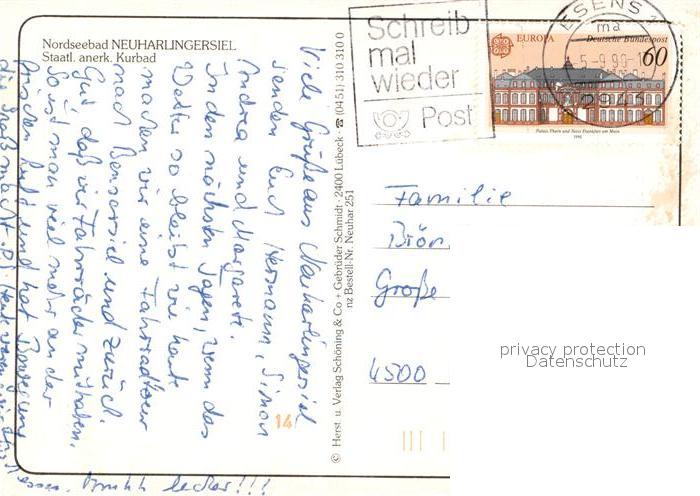 Nordseebad NEUHARLINGERSIEL
Staatl. anerk. Kurbad
Viele Grüße aus Neuharlingersiel
senden Euch Hermann, Simon
Andrea und Margarete.
In den nächsten Tagen, wenn das
Wetter so bleibt wie heute
machen wir eine Fahrradtour
nach Bensersiel und zurück.
Gut, daß wir Fahrräder mithaben.
So ist man viel mehr an der
frischen Luft und hat Bewegung
die Spaß macht. P.S. Heute waren wir
essen. Mmhh lecker!!!
14
© Herst. u. Verlag Schöning & Co + Gebrüder Schmidt · 2400 Lübeck · ☎ (0451) 310 310 0
nz Bestell-Nr. Neuhar 251
Schreib
mal
wieder
Post
ESENS
ma
-5.-9.90-1
2943
EUROPA
Deutsche Bundespost
60
Palais Thurn und Taxis Frankfurt am Main
1990
Familie
Große
4500
privacy protection
Datenschutz